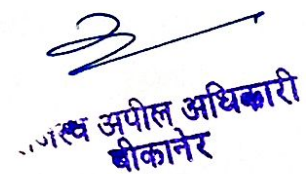 अपील अधिकारी
बीकानेर